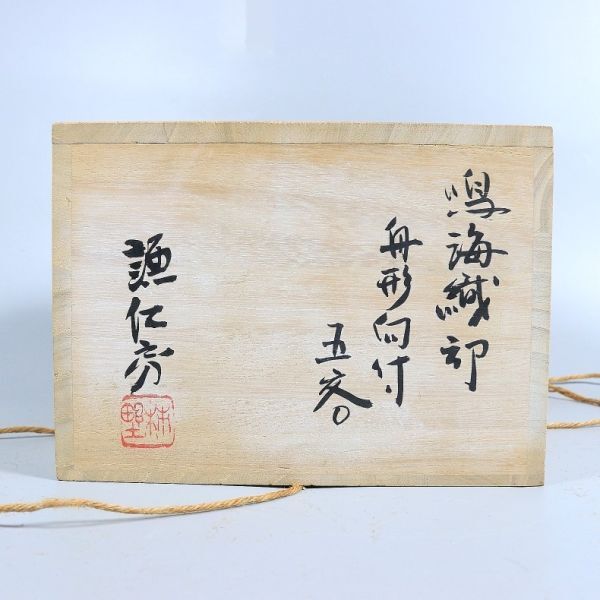 鳴海織部
舟形向付
五客
謙仁窯
林野